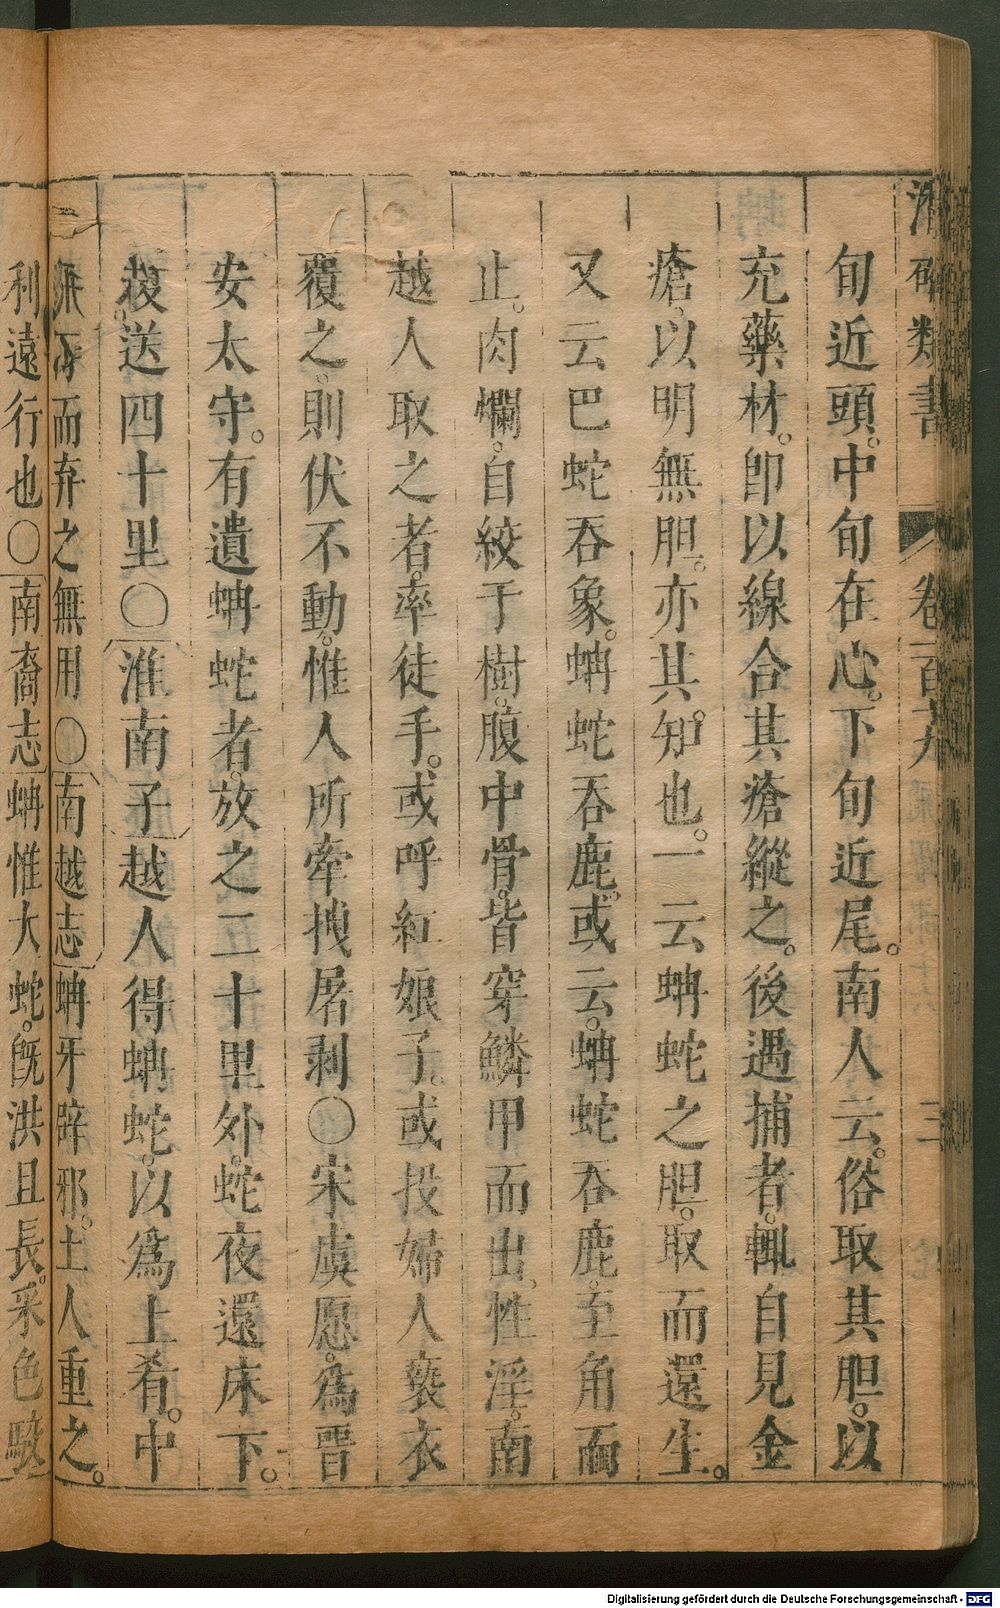 潛確類書 卷一百十九 三
旬近頭。中旬在心。下旬近尾。南人云。俗取其胆。以
充藥材。卽以線合其瘡縱之。後遇捕者。輒自見金
瘡。以明無胆。亦其知也。一云蚺蛇之胆。取而還生。
又云巴蛇吞象。蚺蛇吞鹿。或云。蚺蛇吞鹿。至角而
止。肉爛。自絞于樹。腹中骨。皆穿鱗甲而出。性淫。南
越人取之者。率徒手。或呼紅娘子。或投婦人褻衣
覆之。則伏不動。惟人所牽拽屠剥〇宋虞愿。爲晋
安太守。有遺蚺蛇者。放之二十里外。蛇夜還床下。
復送四十里〇淮南子越人得蚺蛇。以爲上肴。中
而弃之無用〇南越志蚺牙辟邪。土人重之。
利遠行也〇南裔志蚺惟大蛇。旣洪且長。采色駮
Digitalisierung gefördert durch die Deutsche Forschungsgemeinschaft - DFG